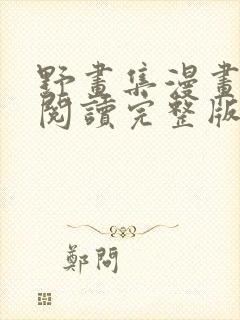 野畫集漫畫
閱讀完整版
鄭問